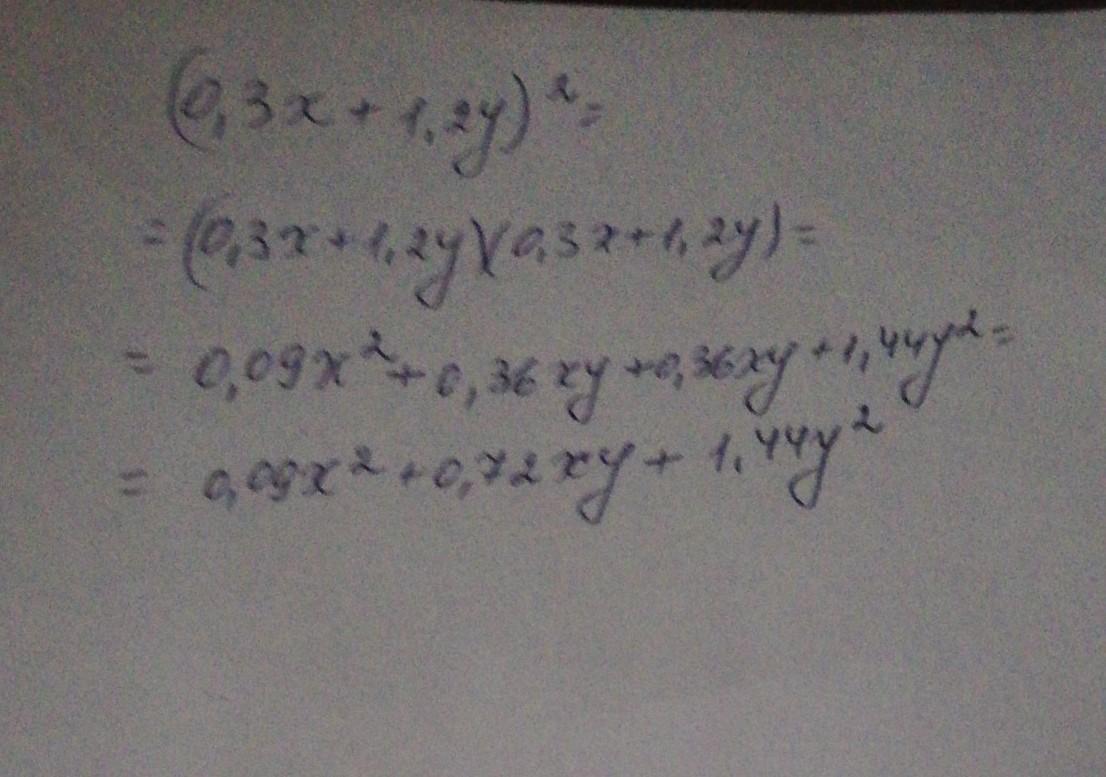 (0,3x + 1,2y)² =
= (0,3x + 1,2y)(0,3x + 1,2y) =
= 0,09x² + 0,36xy + 0,36xy + 1,44y² =
= 0,09x² + 0,72xy + 1,44y²